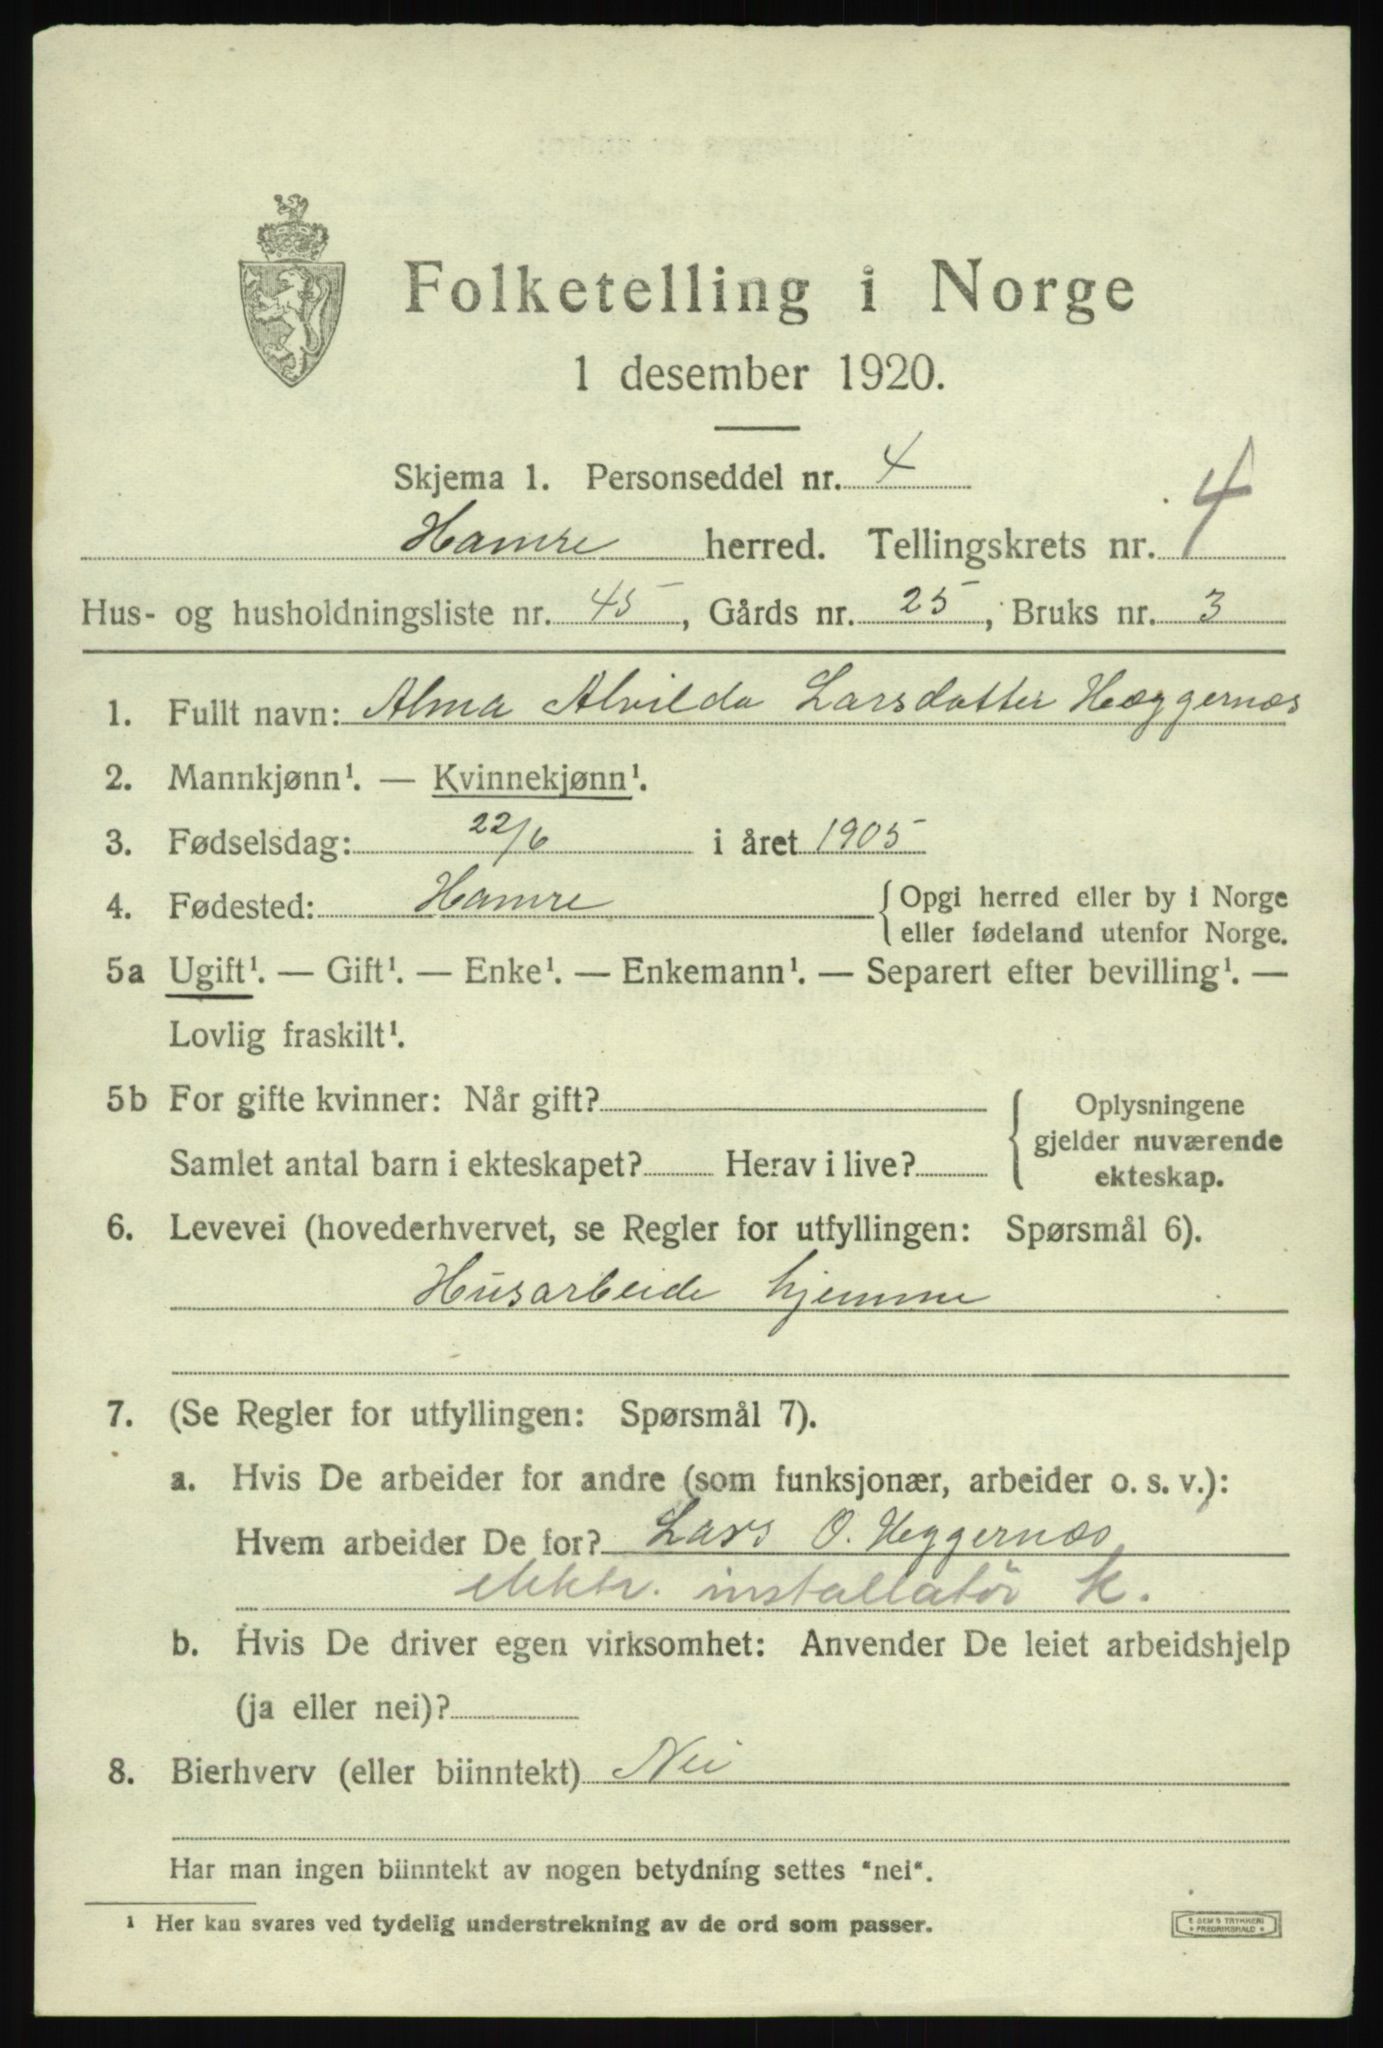 Folketelling i Norge
1 desember 1920.
Skjema 1. Personseddel nr. 4
Hamre herred. Tellingskrets nr. 4
Hus- og husholdningsliste nr. 45, Gårds nr. 25, Bruks nr. 3
1. Fullt navn: Alma Alvilda Larsdatter Hæggernæs
2. Mannkjønn¹. — Kvinnekjønn¹.
3. Fødselsdag: 22/6 i året 1905
4. Fødested: Hamre { Opgi herred eller by i Norge
eller fødeland utenfor Norge.
5a Ugift¹. — Gift¹. — Enke¹. — Enkemann¹. — Separert efter bevilling¹. —
Lovlig fraskilt¹.
5b For gifte kvinner: Når gift?
Samlet antal barn i ekteskapet? Herav i live?
{ Oplysningene
gjelder nuværende
ekteskap.
6. Levevei (hovederhvervet, se Regler for utfyllingen: Spørsmål 6).
Husarbeide hjemme
7. (Se Regler for utfyllingen: Spørsmål 7).
a. Hvis De arbeider for andre (som funksjonær, arbeider o. s. v.):
Hvem arbeider De for? Lars O. Heggernæs
elektr. installatør k.
b. Hvis De driver egen virksomhet: Anvender De leiet arbeidshjelp
(ja eller nei)?
8. Bierhverv (eller biinntekt) Nei
Har man ingen biinntekt av nogen betydning settes "nei".
¹ Her kan svares ved tydelig understrekning av de ord som passer.
E SEM'S TRYKKERI
FREDRIKSHALD